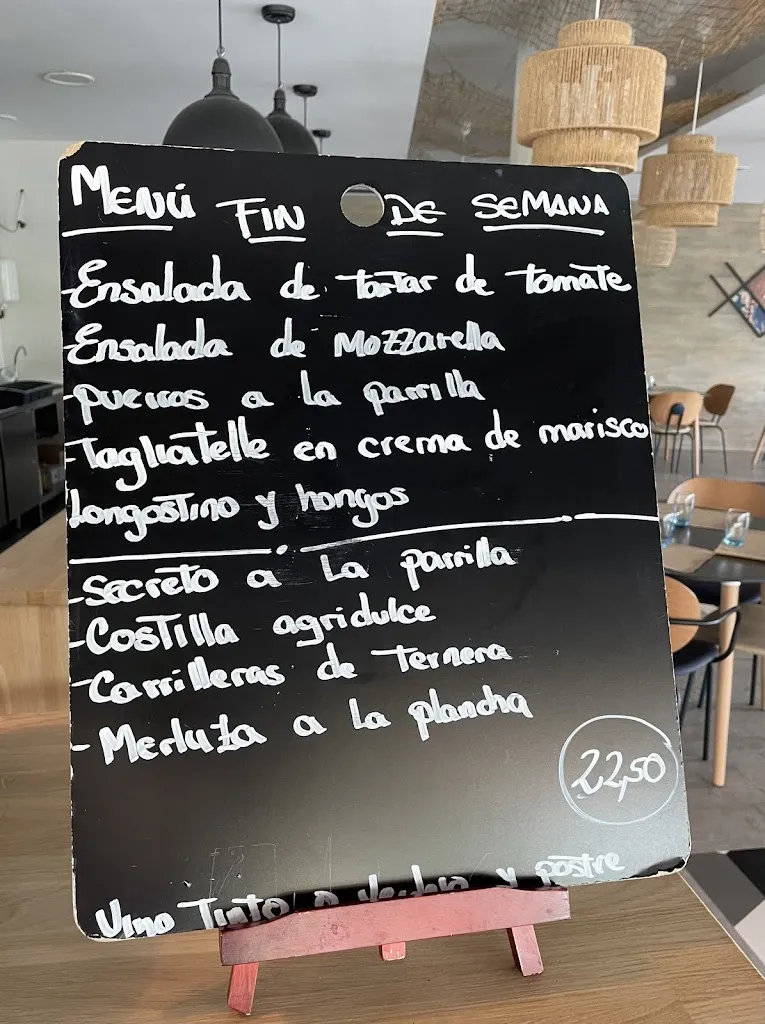 MENÚ FIN DE SEMANA
-Ensalada de tartar de tomate
-Ensalada de Mozzarella
-puerros a la parrilla
-Tagliatelle en crema de marisco
Langostino y hongos
-Secreto a la parrilla
-Costilla agridulce
-Carrilleras de Ternera
-Merluza a la plancha
22,50
Vino Tinto y postre